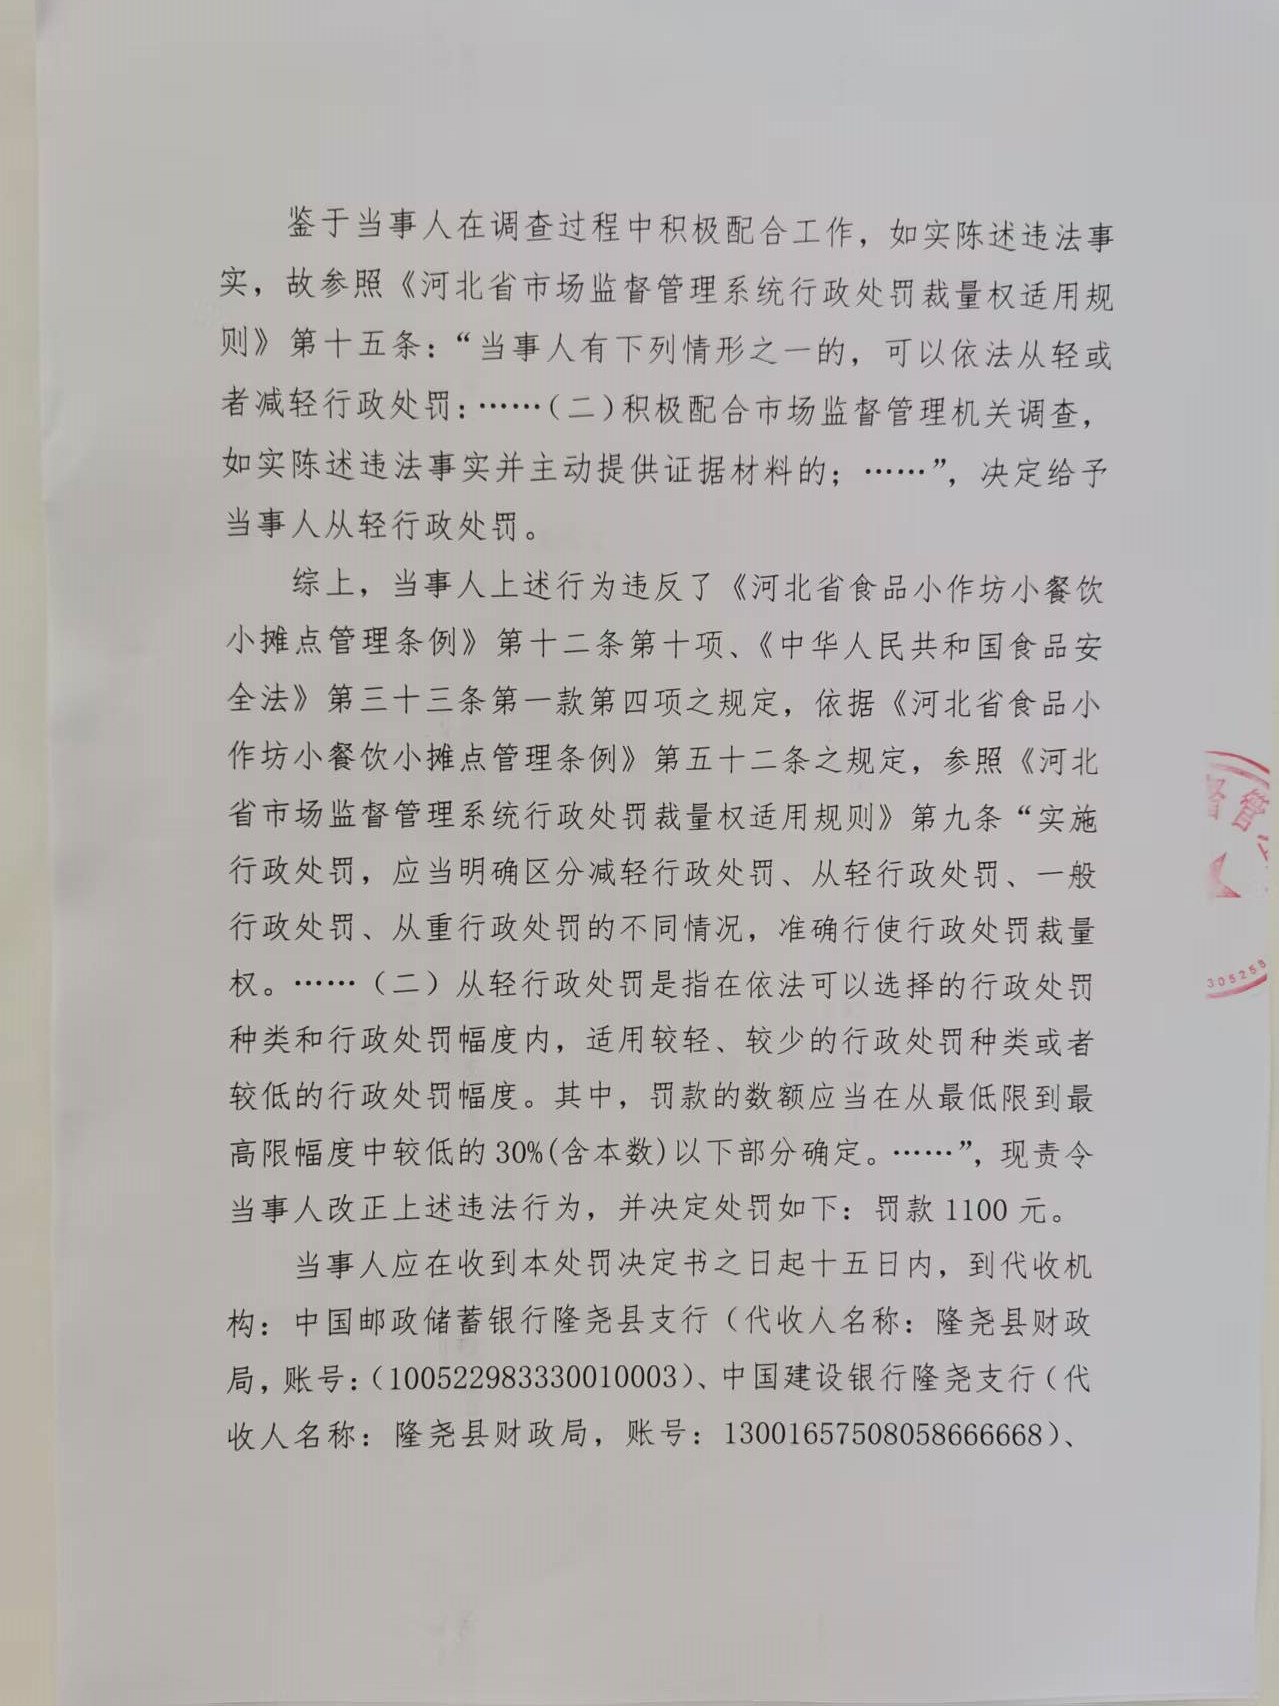 鉴于当事人在调查过程中积极配合工作，如实陈述违法事
实，故参照《河北省市场监督管理系统行政处罚裁量权适用规
则》第十五条：“当事人有下列情形之一的，可以依法从轻或
者减轻行政处罚：……（二）积极配合市场监督管理机关调查，
如实陈述违法事实并主动提供证据材料的；……”，决定给予
当事人从轻行政处罚。
综上，当事人上述行为违反了《河北省食品小作坊小餐饮
小摊点管理条例》第十二条第十项、《中华人民共和国食品安
全法》第三十三条第一款第四项之规定，依据《河北省食品小
作坊小餐饮小摊点管理条例》第五十二条之规定，参照《河北
省市场监督管理系统行政处罚裁量权适用规则》第九条“实施
行政处罚，应当明确区分减轻行政处罚、从轻行政处罚、一般
行政处罚、从重行政处罚的不同情况，准确行使行政处罚裁量
权。……（二）从轻行政处罚是指在依法可以选择的行政处罚
种类和行政处罚幅度内，适用较轻、较少的行政处罚种类或者
较低的行政处罚幅度。其中，罚款的数额应当在从最低限到最
高限幅度中较低的30%(含本数)以下部分确定。……”，现责令
当事人改正上述违法行为，并决定处罚如下：罚款1100元。
当事人应在收到本处罚决定书之日起十五日内，到代收机
构：中国邮政储蓄银行隆尧县支行（代收人名称：隆尧县财政
局，账号：(100522983330010003)、中国建设银行隆尧支行（代
收人名称：隆尧县财政局，账号：13001657508058666668)、
督管
305258